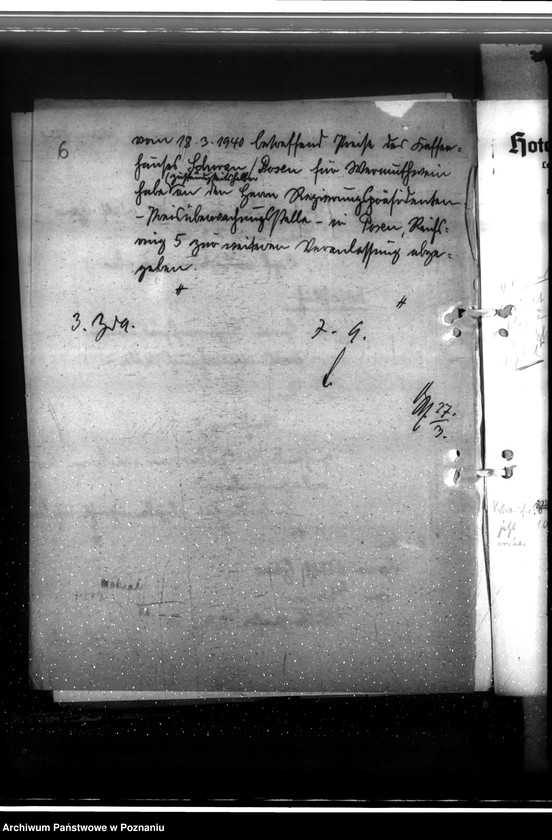 6
vom 18.3.1940 betreffend Preise des Kaffee-
hauses Schwan / Posen für Wermuthwein
(zuständigkeitshalber)
habe an den Herrn Regierungspräsidenten
- Preisüberwachungsstelle - in Posen, Reichs-
ring 5 zur weiteren Veranlassung abge-
geben.
3. ZdA.
27.
3.
Hote
Archiwum Państwowe w Poznaniu